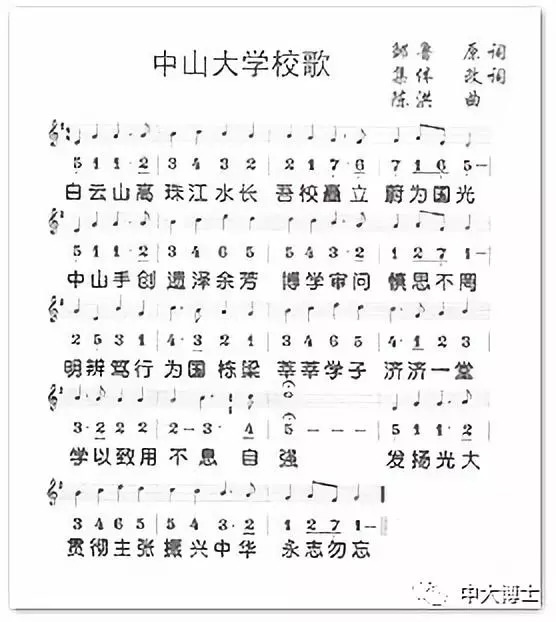 中山大学校歌
邹鲁 原词
集体 改词
陈洪 曲
5 1 1· 2 | 3 4 3 2 | 2 1 7· 6 | 7 1 6 5 — |
白云山高 珠江水长 吾校矗立 蔚为国光
5 1 1· 2 | 3 4 6 5 | 5 4 3· 2 | 1 2 7 1 — |
中山手创 遗泽余芳 博学审问 慎思不罔
2 5 3 1 | 4· 3 2 1 | 3 4 6 5 | 4· 1 2 3 |
明辨笃行 为国栋梁 莘莘学子 济济一堂
3· 2 2 2 | 2 — 3· 4 | 5 — — — | 5 1 1· 2 |
学以致用 不息自强 发扬光大
3 4 6 5 | 5 4 3· 2 | 1 2 7 1 — ‖
贯彻主张 振兴中华 永志勿忘
中大博士